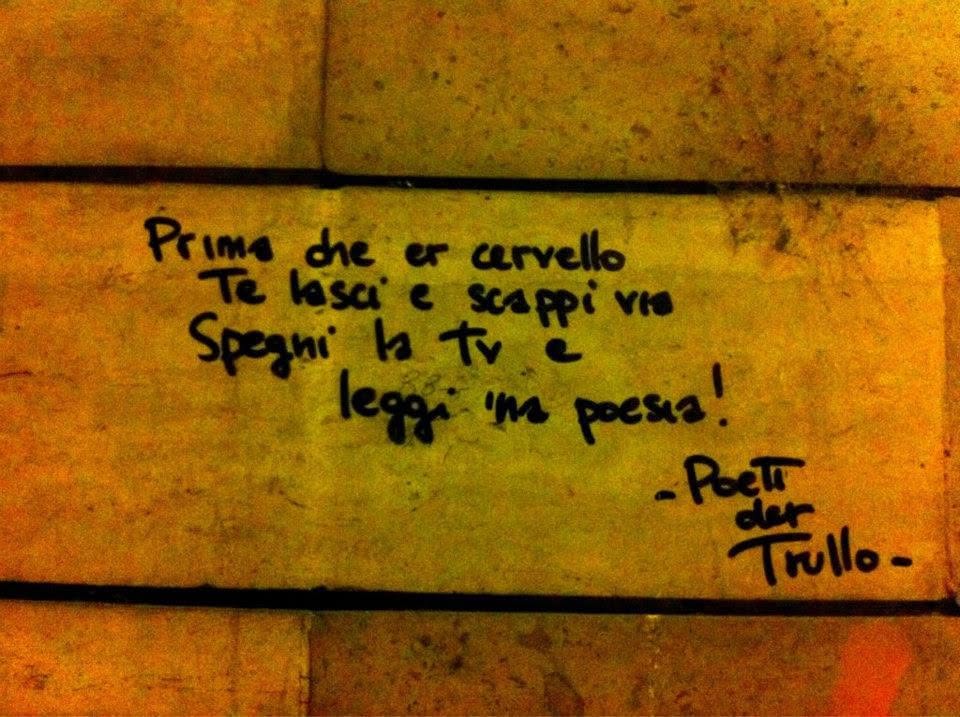 Prima che er cervello
Te lasci e scappi via
Spegni la Tv e
leggi 'na poesia!
- Poeti
der
Trullo -